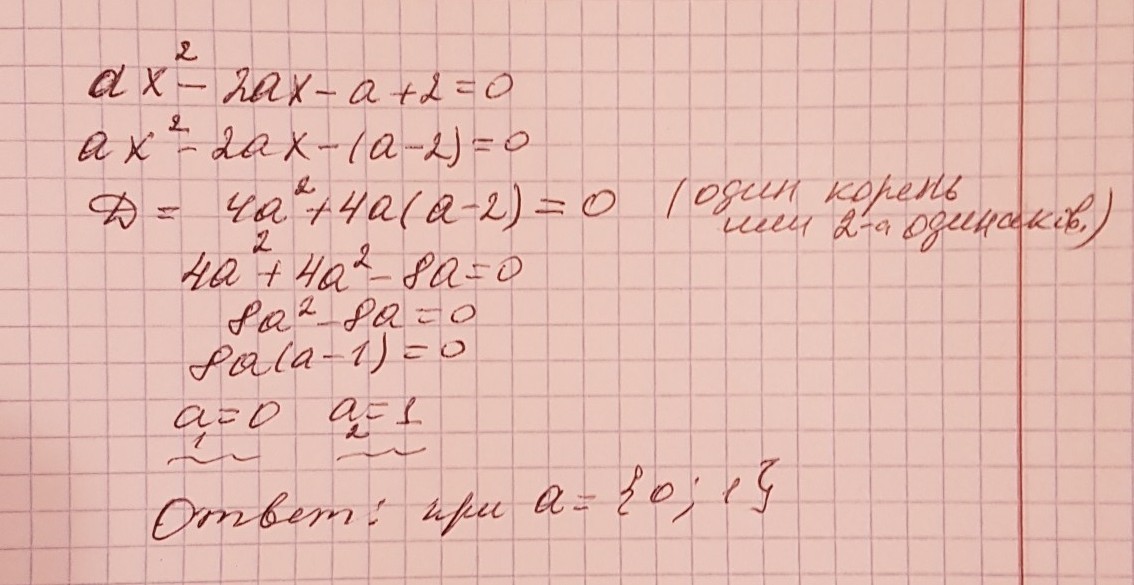 ax² - 2ax - a + 2 = 0
ax² - 2ax - (a - 2) = 0
D = 4a² + 4a(a - 2) = 0 (один корень
или 2-а одинаків.)
4a² + 4a² - 8a = 0
8a² - 8a = 0
8a(a - 1) = 0
a₁ = 0 a₂ = 1
Ответ: при a = {0; 1}